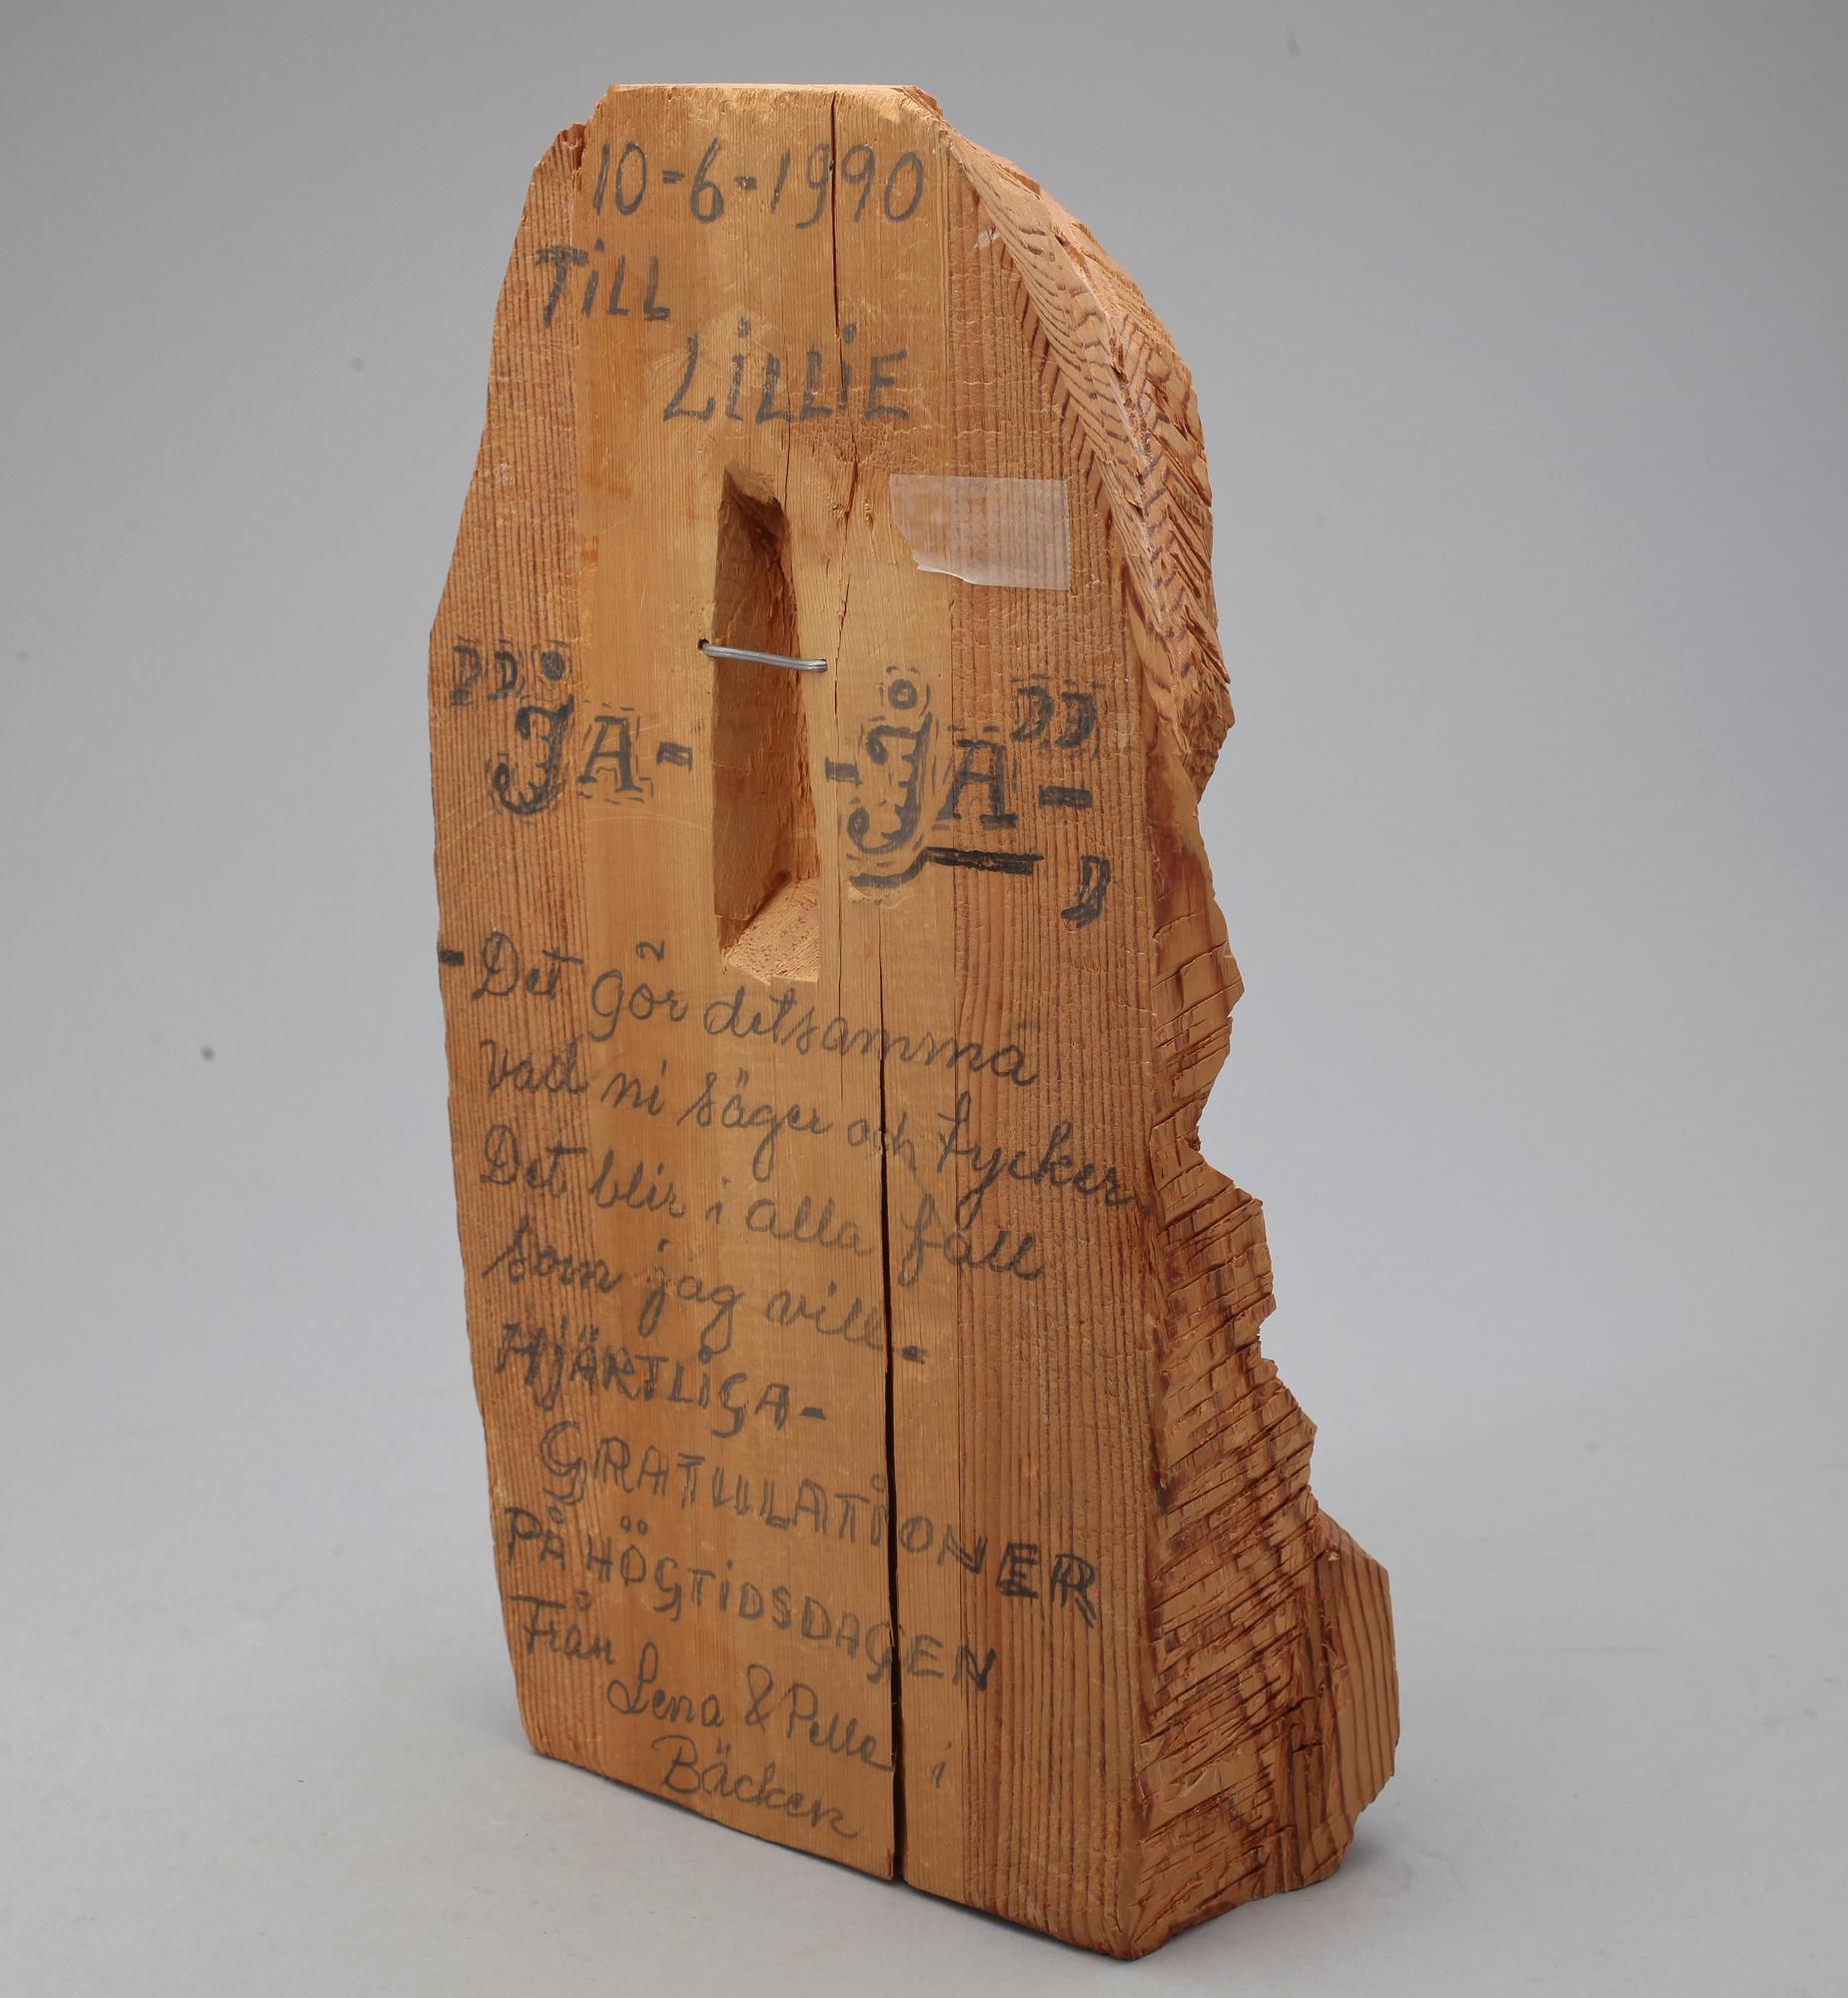 10-6-1990
TiLL
LiLLiE
JA- -JA-
-Det gör detsamma
vad ni säger och tycker.
Det blir i alla fall
som jag vill-
HJÄRTLiGA-
GRATULATiONER
PÅ HÖGTiDSDAGEN
Från
Lena & Pelle i
Bäcken